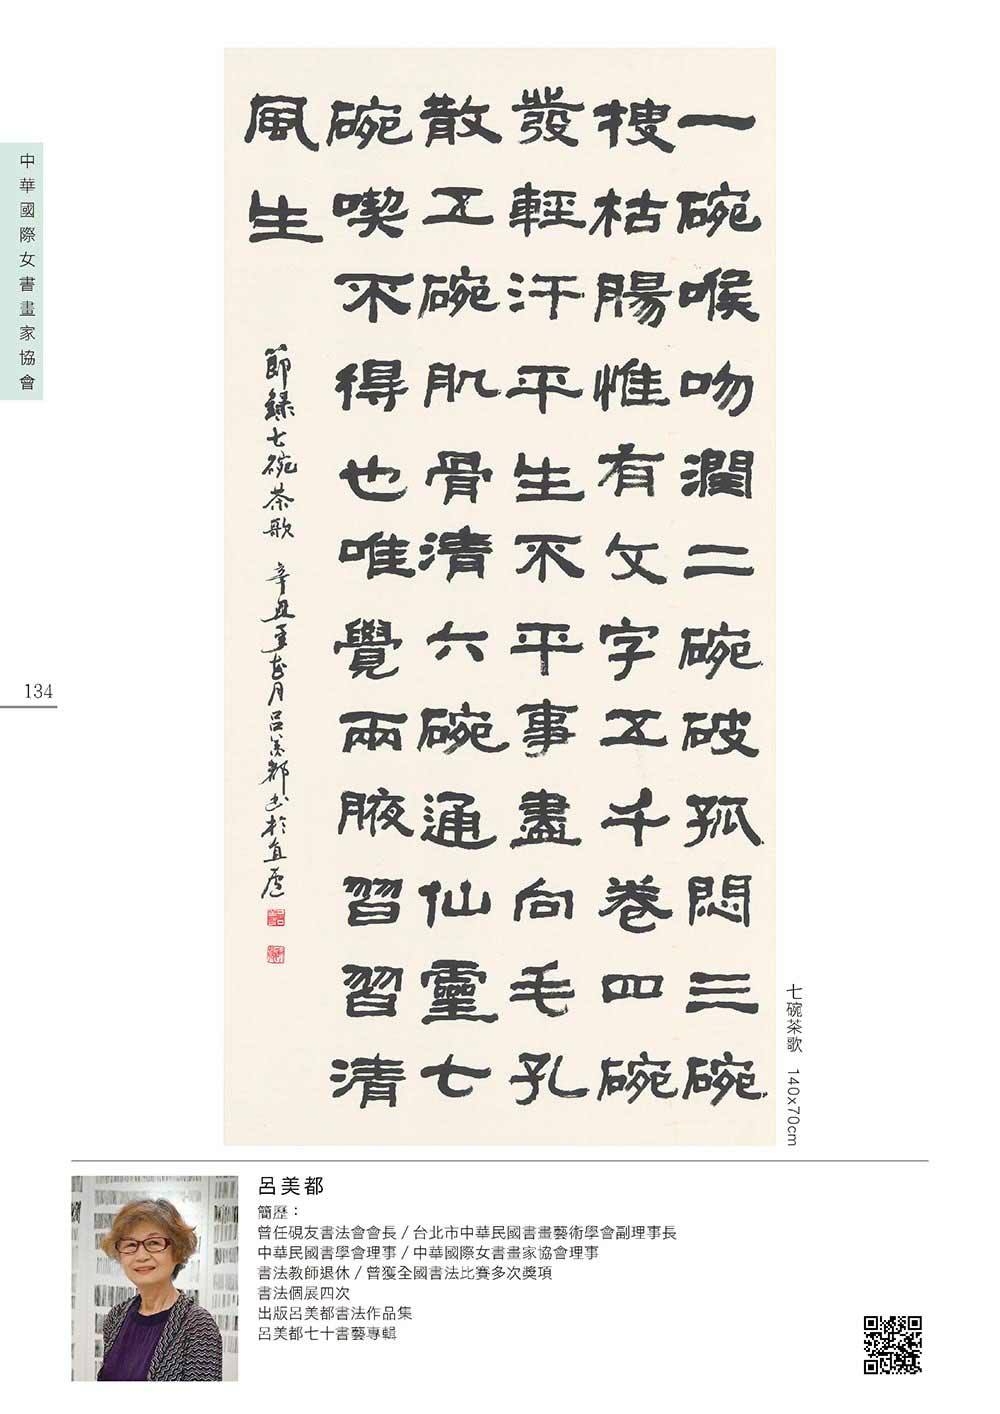 中華國際女書畫家協會
134
一碗喉吻潤二碗破孤悶三碗
搜枯腸惟有文字五千卷四碗
發輕汗平生不平事盡向毛孔
散五碗肌骨清六碗通仙靈七
碗喫不得也唯覺兩腋習習清
風生
節錄七碗茶歌 辛丑年 月呂美都書於直廬
七碗茶歌 140x70cm
呂美都
簡歷：
曾任硯友書法會會長 / 台北市中華民國書畫藝術學會副理事長
中華民國書學會理事 / 中華國際女書畫家協會理事
書法教師退休 / 曾獲全國書法比賽多次獎項
書法個展四次
出版呂美都書法作品集
呂美都七十書藝專輯